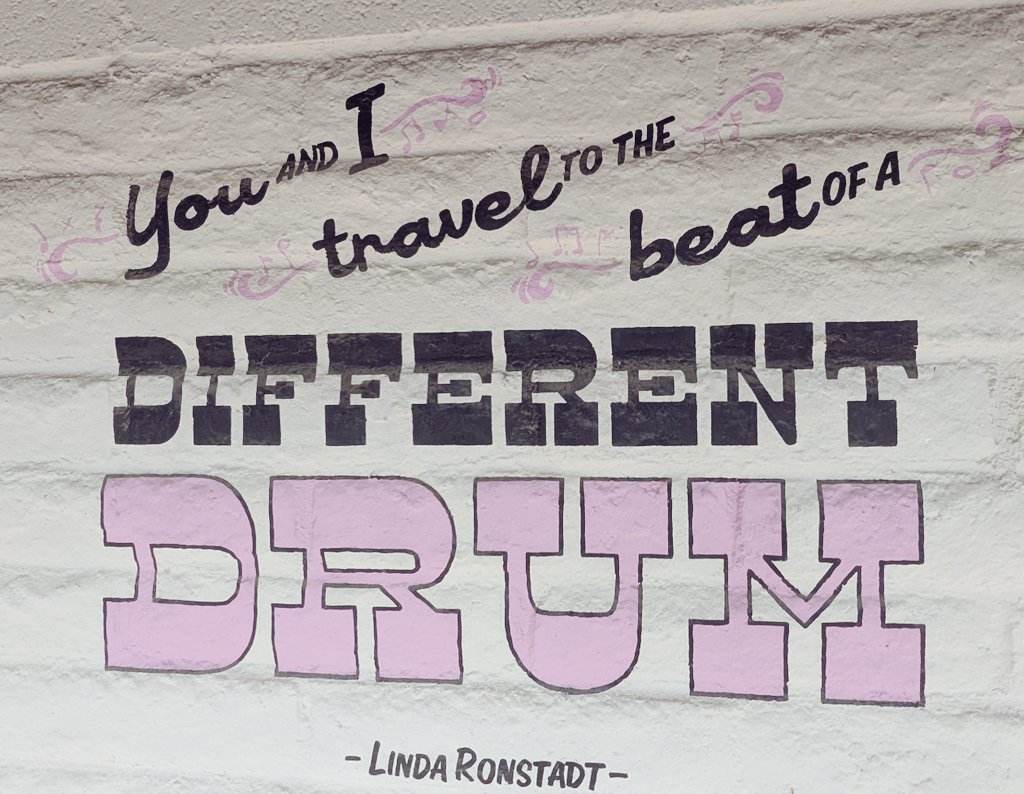 You AND I
travel TO THE
beat OF A
DIFFERENT
DRUM
- LINDA RONSTADT -